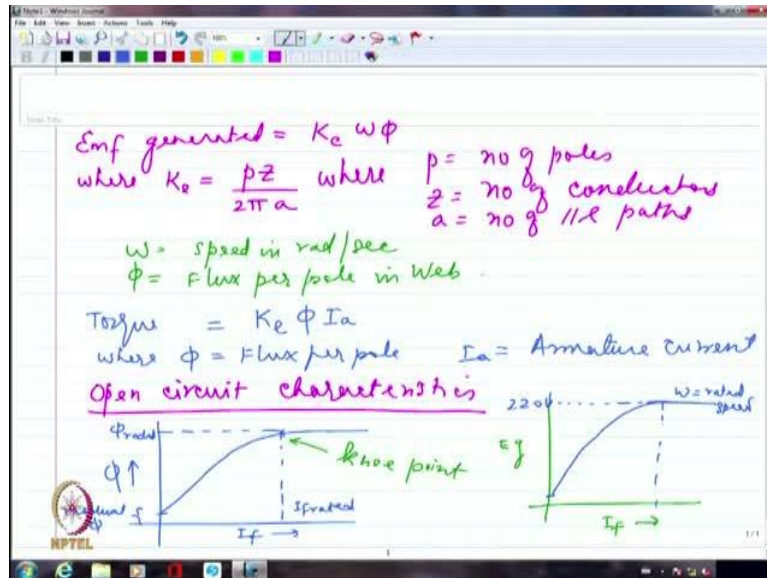 Note1 - Windows Journal
File Edit View Insert Actions Tools Help
100%
B I
Note Title
Emf generated = Ke ω φ
where Ke = pz / 2π a where p = no of poles
z = no of conductors
a = no of //l paths
ω = speed in rad/sec
φ = Flux per pole in Web.
Torque = Ke φ Ia
where φ = Flux per pole Ia = Armature current
Open circuit characteristics
φrated
φ↑
knee point
Ifrated
φ
If →
220V
ω = rated
speed
Eg
If →
NPTEL
1/1